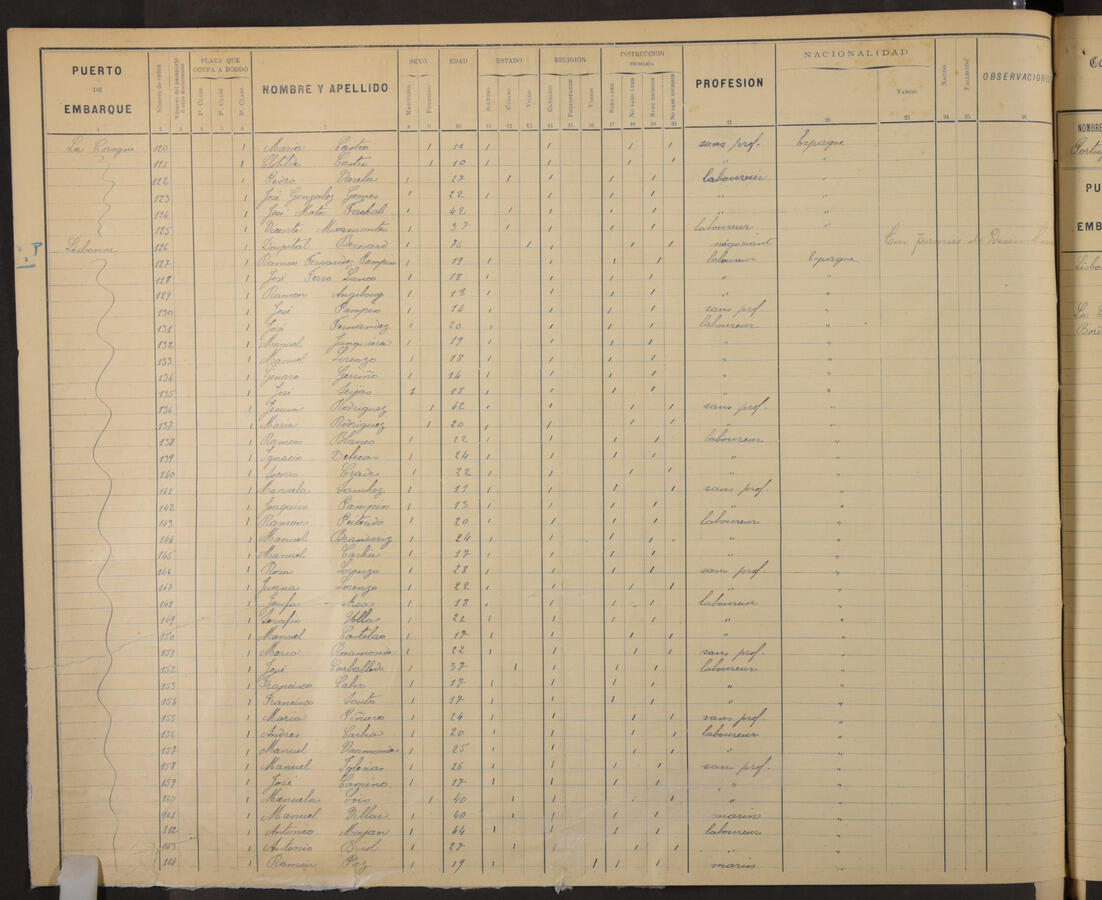 PUERTO DE EMBARQUE Número de orden Número del pasaporte ó otro documento PLAZA QUE OCUPA A BORDO 1ª CLASE 2ª CLASE 3ª CLASE NOMBRE Y APELLIDO SEXO Masculino Femenino EDAD ESTADO Soltero Casado Viudo RELIGIÓN Católico Protestante Varios INSTRUCCION PRIMARIA Sabe leer No sabe leer Sabe escribir No sabe escribir PROFESION NACIONALIDAD Varios Nacidos Fallecidos OBSERVACIONES
La Corogne 120 1 Maria Castro 1 11 1 1 1 1 sans prof. Espagne
121 1 Clotilde Castro 1 10 1 1 1 1 "
122 1 Pedro Varela 1 27 1 1 1 1 laboureur "
123 1 José Gonzalez Gomes 1 22 1 1 1 1 " "
124 1 José Mato 1 42 1 1 1 1 " "
125 1 Vicente Miramontes 1 37 1 1 1 1 laboureur "
Lisbonne 126 1 Hospital Bernard 1 26 1 1 1 1 négociant
127 1 Ramon Fernandez Pampin 1 19 1 1 1 1 laboureur Espagne
128 1 José Ferro 1 18 1 1 1 1 " "
129 1 Ramon 1 18 1 1 1 1 " "
130 1 José Pampin 1 14 1 1 1 1 sans prof. "
131 1 José Fernandez 1 20 1 1 1 1 laboureur "
132 1 Manuel Junqueira 1 19 1 1 1 1 " "
133 1 Manuel Lorenzo 1 18 1 1 1 1 " "
134 1 Genaro 1 14 1 1 1 1 " "
135 1 José Seijas 1 18 1 1 1 1 " "
136 1 Rodriguez 1 42 1 1 1 1 sans prof. "
137 1 Maria Rodriguez 1 20 1 1 1 1 " "
138 1 Ramon Blanco 1 22 1 1 1 1 laboureur "
139 1 Ignacio 1 24 1 1 1 1 " "
140 1 1 22 1 1 1 1 " "
141 1 Manuela Sanchez 1 19 1 1 1 1 sans prof. "
142 1 Joaquin Pampin 1 13 1 1 1 1 " "
143 1 Ramon Peiteado 1 20 1 1 1 1 laboureur "
144 1 Manuel Brandariz 1 24 1 1 1 1 " "
145 1 Manuel 1 17 1 1 1 1 " "
146 1 Rosa Lorenzo 1 28 1 1 1 1 sans prof. "
147 1 Juana Lorenzo 1 22 1 1 1 1 " "
148 1 1 18 1 1 1 1 laboureur "
149 1 Serafin Ulla 1 22 1 1 1 1 " "
150 1 Manuel Castelao 1 17 1 1 1 1 " "
151 1 Maria 1 22 1 1 1 1 sans prof. "
152 1 José Carballeda 1 37 1 1 1 1 laboureur "
153 1 Francisco Calvo 1 17 1 1 1 1 " "
154 1 Francisco Souto 1 17 1 1 1 1 " "
155 1 Maria Piñeiro 1 24 1 1 1 1 sans prof. "
156 1 Andres 1 20 1 1 1 1 laboureur "
157 1 Manuel 1 25 1 1 1 1 " "
158 1 Manuel Iglesia 1 26 1 1 1 1 sans prof. "
159 1 José Camino 1 17 1 1 1 1 " "
160 1 Manuela Lois 1 40 1 1 1 1 " "
161 1 Manuel Villar 1 40 1 1 1 1 marin "
162 1 Antonio Moyan 1 44 1 1 1 1 laboureur "
163 1 Antonio 1 27 1 1 1 1 " "
164 1 Ramon Paz 1 19 1 1 1 1 marin "